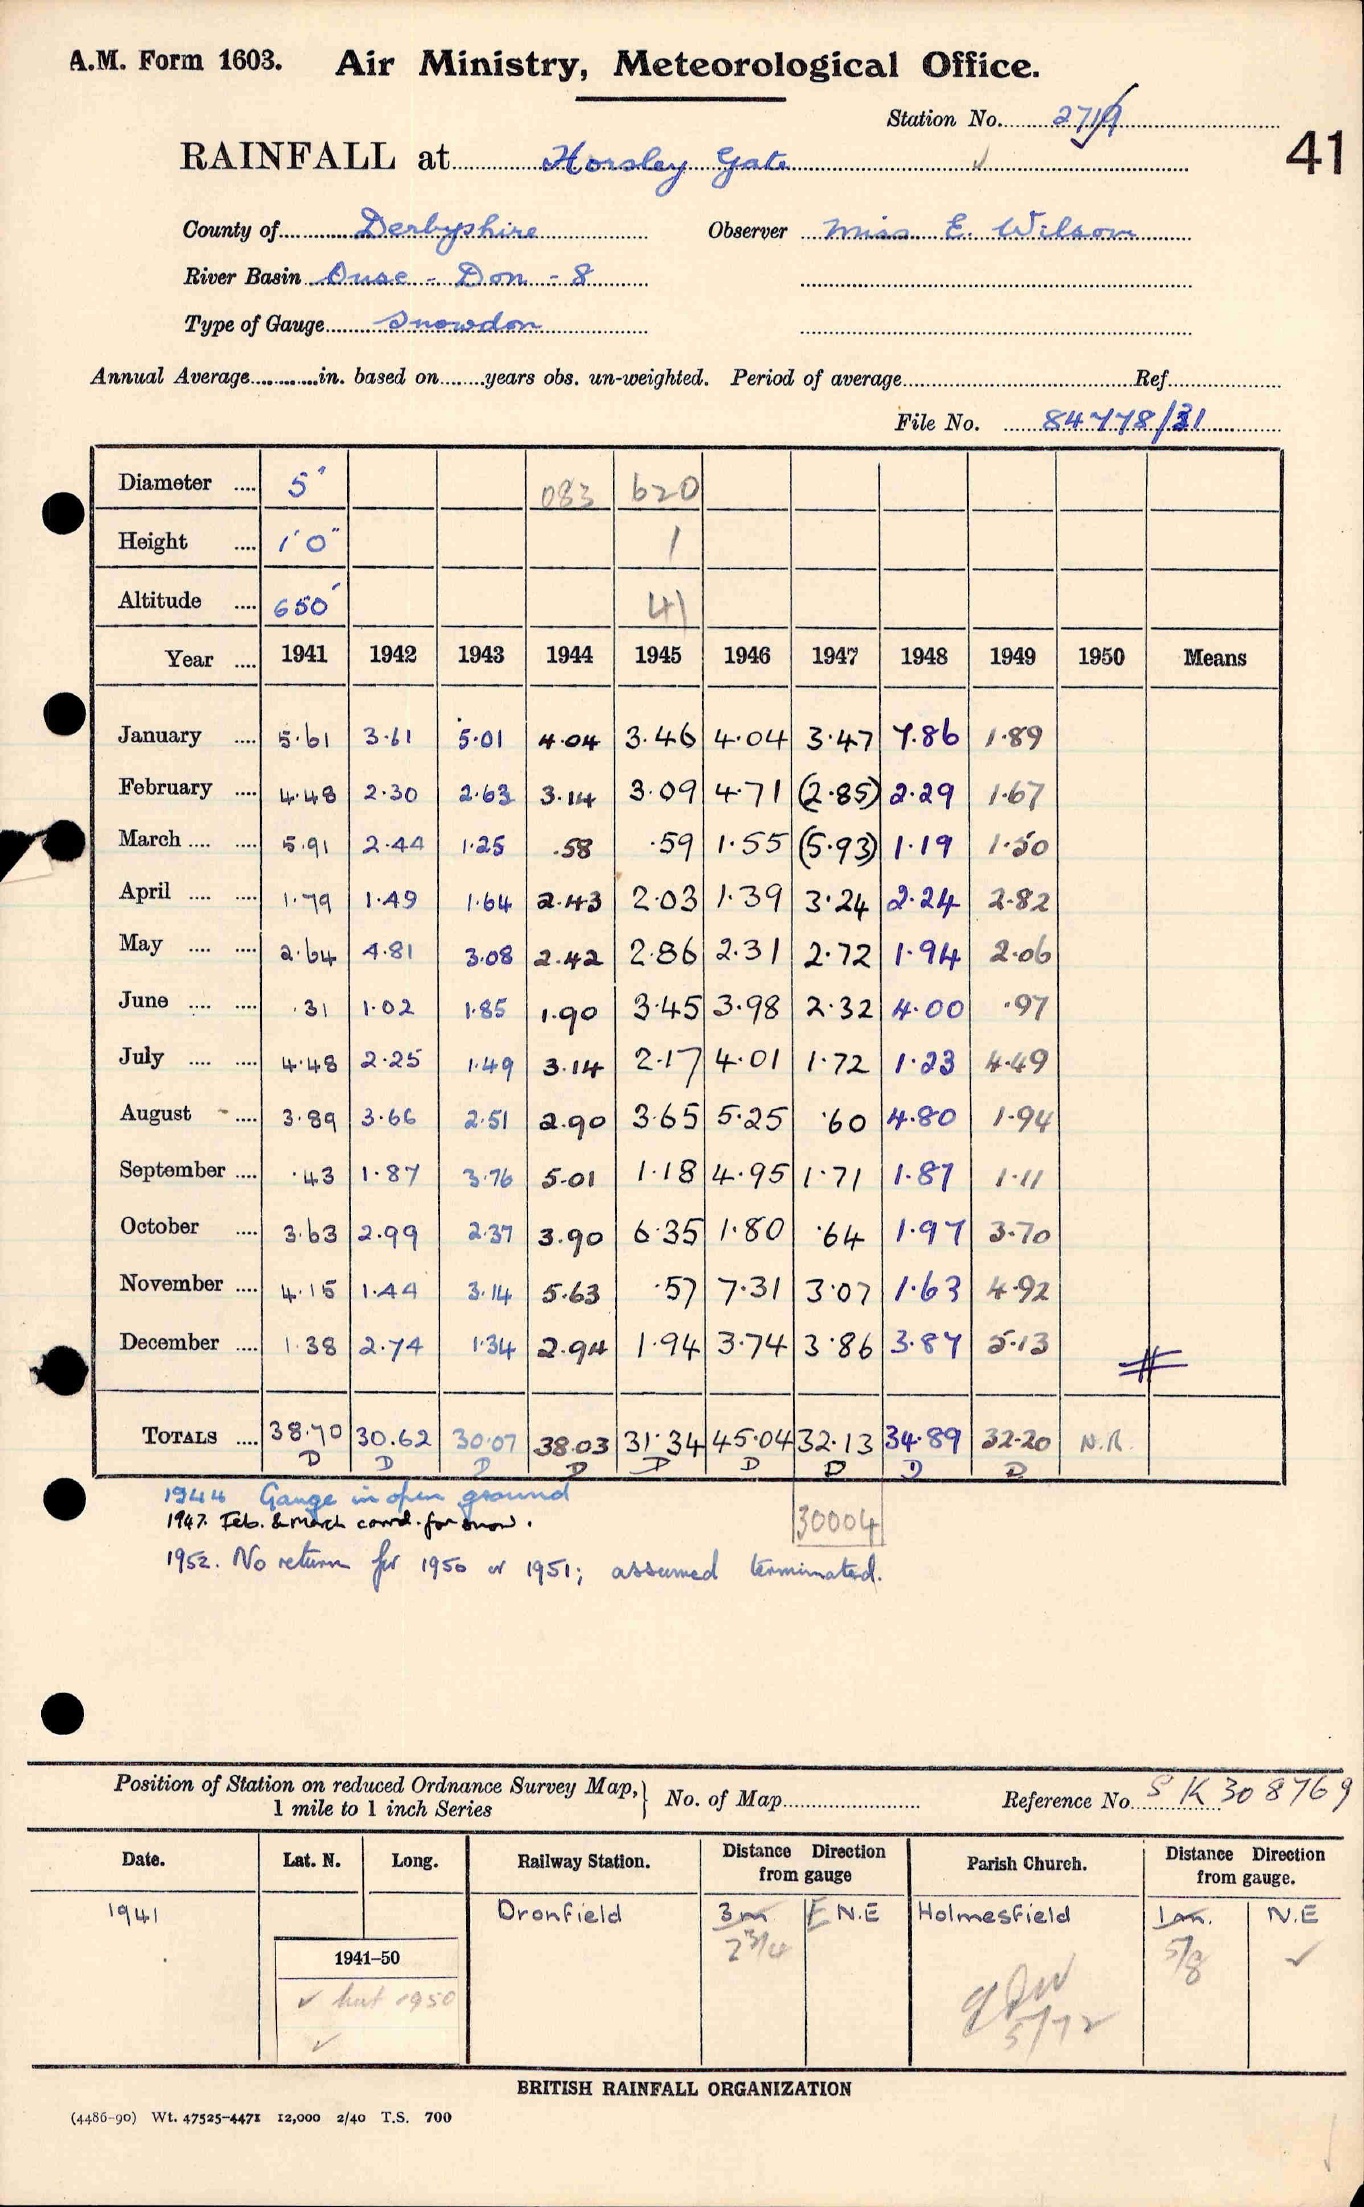 A.M. Form 1603. Air Ministry, Meteorological Office.
Station No. 2719
41
RAINFALL at Horsley Gate
County of Derbyshire Observer Miss E. Wilson
River Basin Ouse - Don - 8
Type of Gauge Snowdon
Annual Average in. based on years obs. un-weighted. Period of average Ref
File No. 84778/31
Diameter 5" 083 620
Height 1'0" 1
Altitude 650' 41
Year 1941 1942 1943 1944 1945 1946 1947 1948 1949 1950 Means
January 5.61 3.61 5.01 4.04 3.46 4.04 3.47 7.86 1.89
February 4.48 2.30 2.63 3.14 3.09 4.71 (2.85) 2.29 1.67
March 5.91 2.44 1.25 .58 .59 1.55 (5.93) 1.19 1.50
April 1.79 1.49 1.64 2.43 2.03 1.39 3.24 2.24 2.82
May 2.64 4.81 3.08 2.42 2.86 2.31 2.72 1.94 2.06
June .31 1.02 1.85 1.90 3.45 3.98 2.32 4.00 .97
July 4.48 2.25 1.49 3.14 2.17 4.01 1.72 1.23 4.49
August 3.89 3.66 2.51 2.90 3.65 5.25 .60 4.80 1.94
September .43 1.87 3.76 5.01 1.18 4.95 1.71 1.87 1.11
October 3.63 2.99 2.37 3.90 6.35 1.80 .64 1.97 3.70
November 4.15 1.44 3.14 5.63 .57 7.31 3.07 1.63 4.92
December 1.38 2.74 1.34 2.94 1.94 3.74 3.86 3.87 5.13
TOTALS 38.70 30.62 30.07 38.03 31.34 45.04 32.13 34.89 32.20 N.R.
D D D D D D D D D
1944 Gauge in open ground
30004
1947. Feb. & March corrd. for snow.
1952. No return for 1950 or 1951; assumed terminated.
Position of Station on reduced Ordnance Survey Map, 1 mile to 1 inch Series No. of Map Reference No. SK 308769
Date. Lat. N. Long. Railway Station. Distance Direction from gauge Parish Church. Distance Direction from gauge.
1941 Dronfield 3m E N.E Holmesfield 1m. N.E
2 3/4 5/8
1941-50
✓ but 1950
✓
5/72
BRITISH RAINFALL ORGANIZATION
(4486-90) Wt. 47525-4471 12,000 2/40 T.S. 700